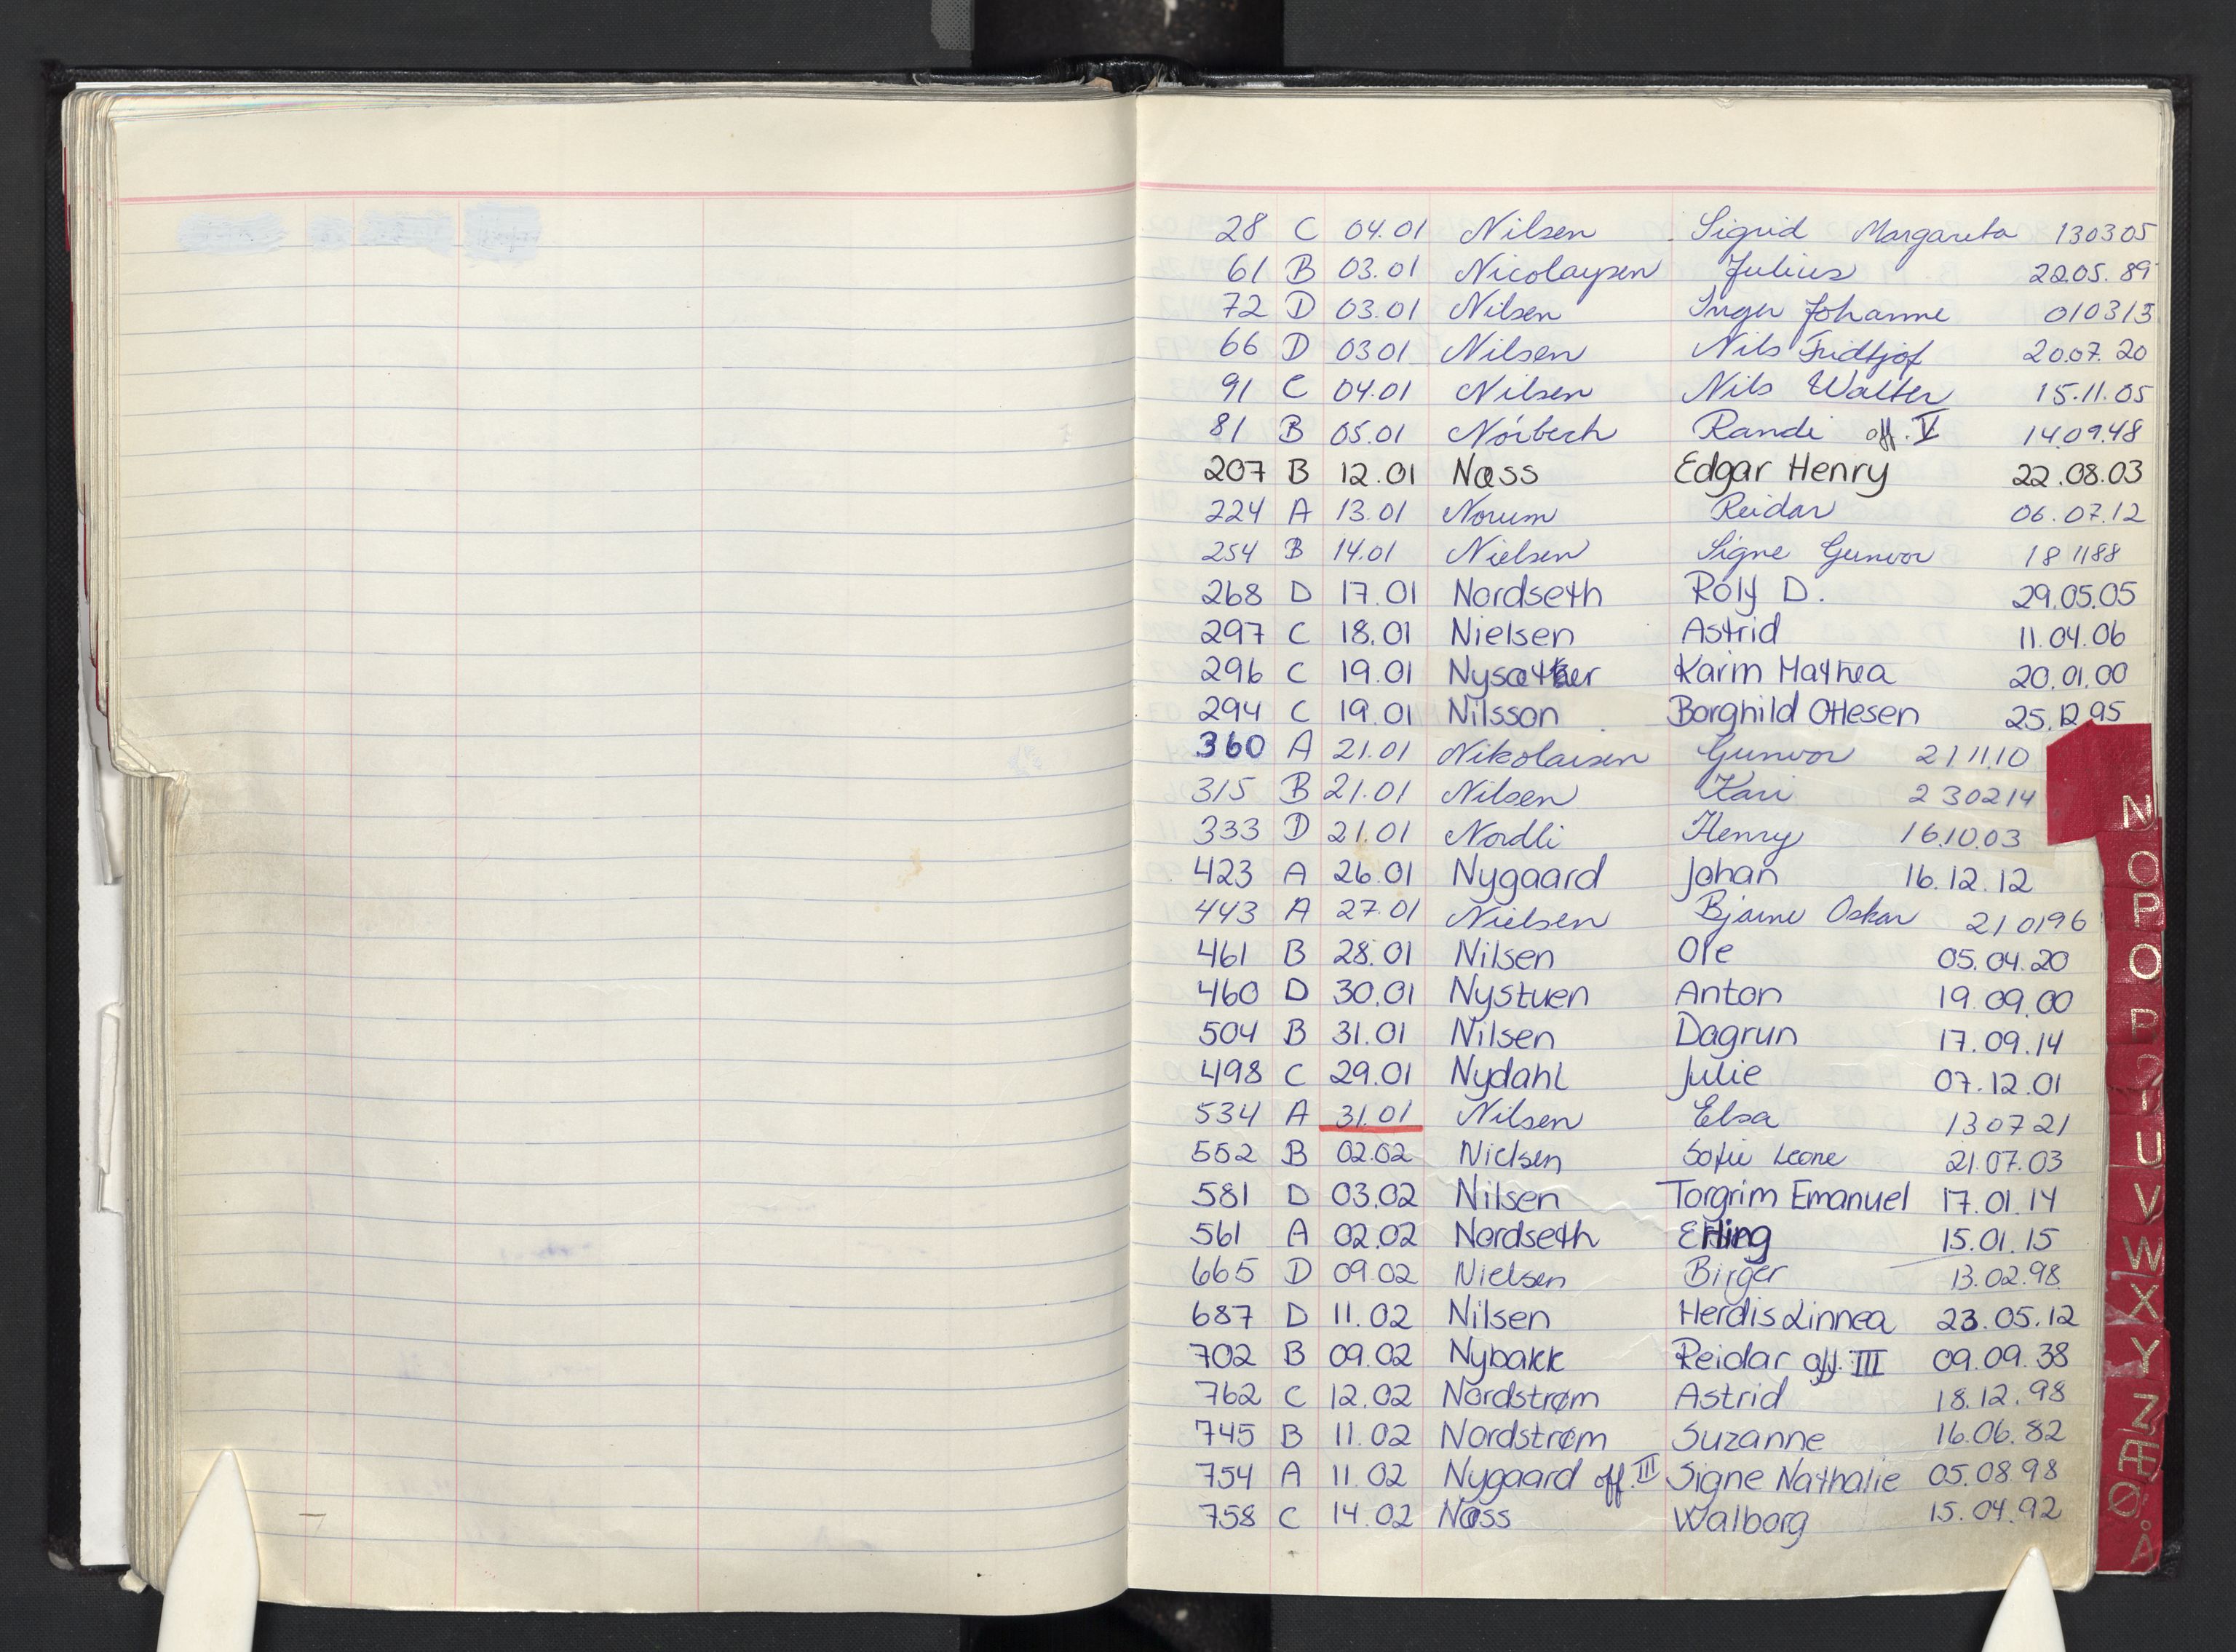 28 C 04.01 Nilsen Sigrid Margareta 130305
61 B 03.01 Nicolaysen Julius 22.05.89
72 D 03.01 Nilsen Inger Johanne 010313
66 D 0301 Nilsen Nils Fridtjof 20.07.20
91 C 04.01 Nilsen Nils Walter 15.11.05
81 B 05.01 Nórbech Randi off. V 14.09.48
207 B 12.01 Næss Edgar Henry 22.08.03
224 A 13.01 Norum Reidar 06.07.12
254 B 14.01 Nielsen Signe Gunvor 181188
268 D 17.01 Nordseth Rolf D. 29.05.05
297 C 18.01 Nielsen Astrid 11.04.06
296 C 19.01 Nysæther Karin Mathea 20.01.00
294 C 19.01 Nilsson Borghild Ottesen 25.12.95
360 A 21.01 Nikolaisen Gunvor 211110
315 B 21.01 Nilsen Kari 230214
333 D 21.01 Nordli Henry 16.10.03
423 A 26.01 Nygaard Johan 16.12.12
443 A 27.01 Nielsen Bjarne Oskar 210196
461 B 28.01 Nilsen Ole 05.04.20
460 D 30.01 Nystuen Anton 19.09.00
504 B 31.01 Nilsen Dagrun 17.09.14
498 C 29.01 Nydahl Julie 07.12.01
534 A 31.01 Nilsen Elsa 130721
552 B 02.02 Nielsen Sofie Leone 21.07.03
581 D 03.02 Nilsen Torgrim Emanuel 17.01.14
561 A 02.02 Nordseth Erling 15.01.15
665 D 09.02 Nielsen Birger 13.02.98
687 D 11.02 Nilsen Herdis Linnea 23.05.12
702 B 09.02 Nybakk Reidar off. III 09.09.38
762 C 12.02 Nordstrøm Astrid 18.12.98
745 B 11.02 Nordstrøm Suzanne 16.06.82
754 A 11.02 Nygaard off. III Signe Nathalie 05.08.98
758 C 14.02 Næss Walborg 15.04.92
N
O
P
O
P
U
V
W
X
Y
Z
Æ
Ø
Å